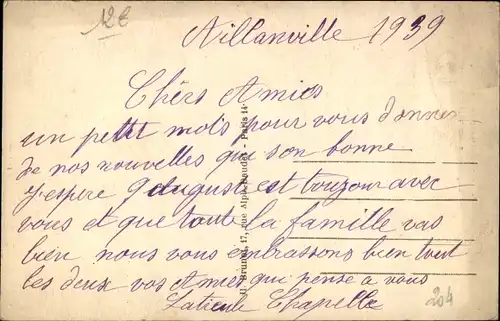 12€
Villanville 1939
Chèrs Amies
un petit mots pour vous donner
de nos nouvelles qui son bonne
J'espere August est toujour avec
vous et que toute la famille vas
bien nous vous embrassons bien tout
les deux vos Amies qui pense a vous
Chapelle
204
17, rue - Paris 14e